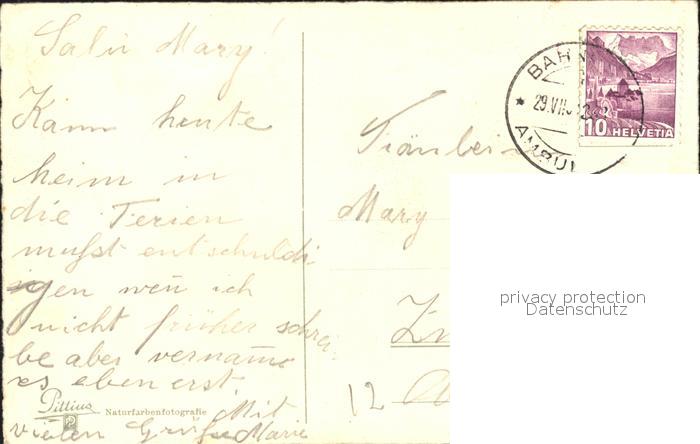 Salü Mary!
Kam heute
heim in
die Ferien
mußt entschuldi
igen wen ich
nicht früher schrei
be aber vername
es eben erst.
Mit
vielen Gruß Marie
Pittius
Naturfarbenfotografie
BAHN
29.VII.
10 HELVETIA
Fräulein
Mary
12
privacy protection
Datenschutz